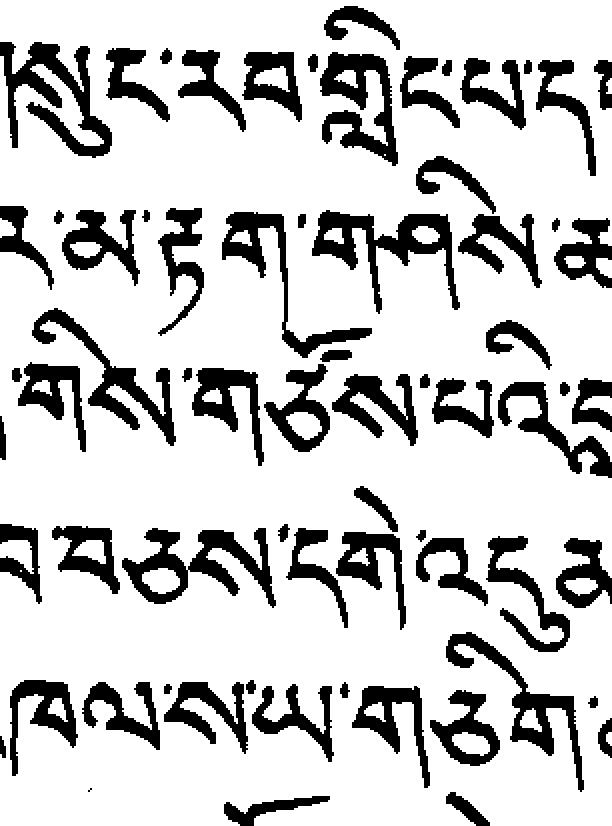 གསུང་རབ་གླིང་པ་ད
ར་མ་རྟག་གཤིས་ཆ
གིས་གཙོས་པའི་
བ་བཅས་དགེ་འདུན
ཁལ་ས་ཡ་གཅིག་